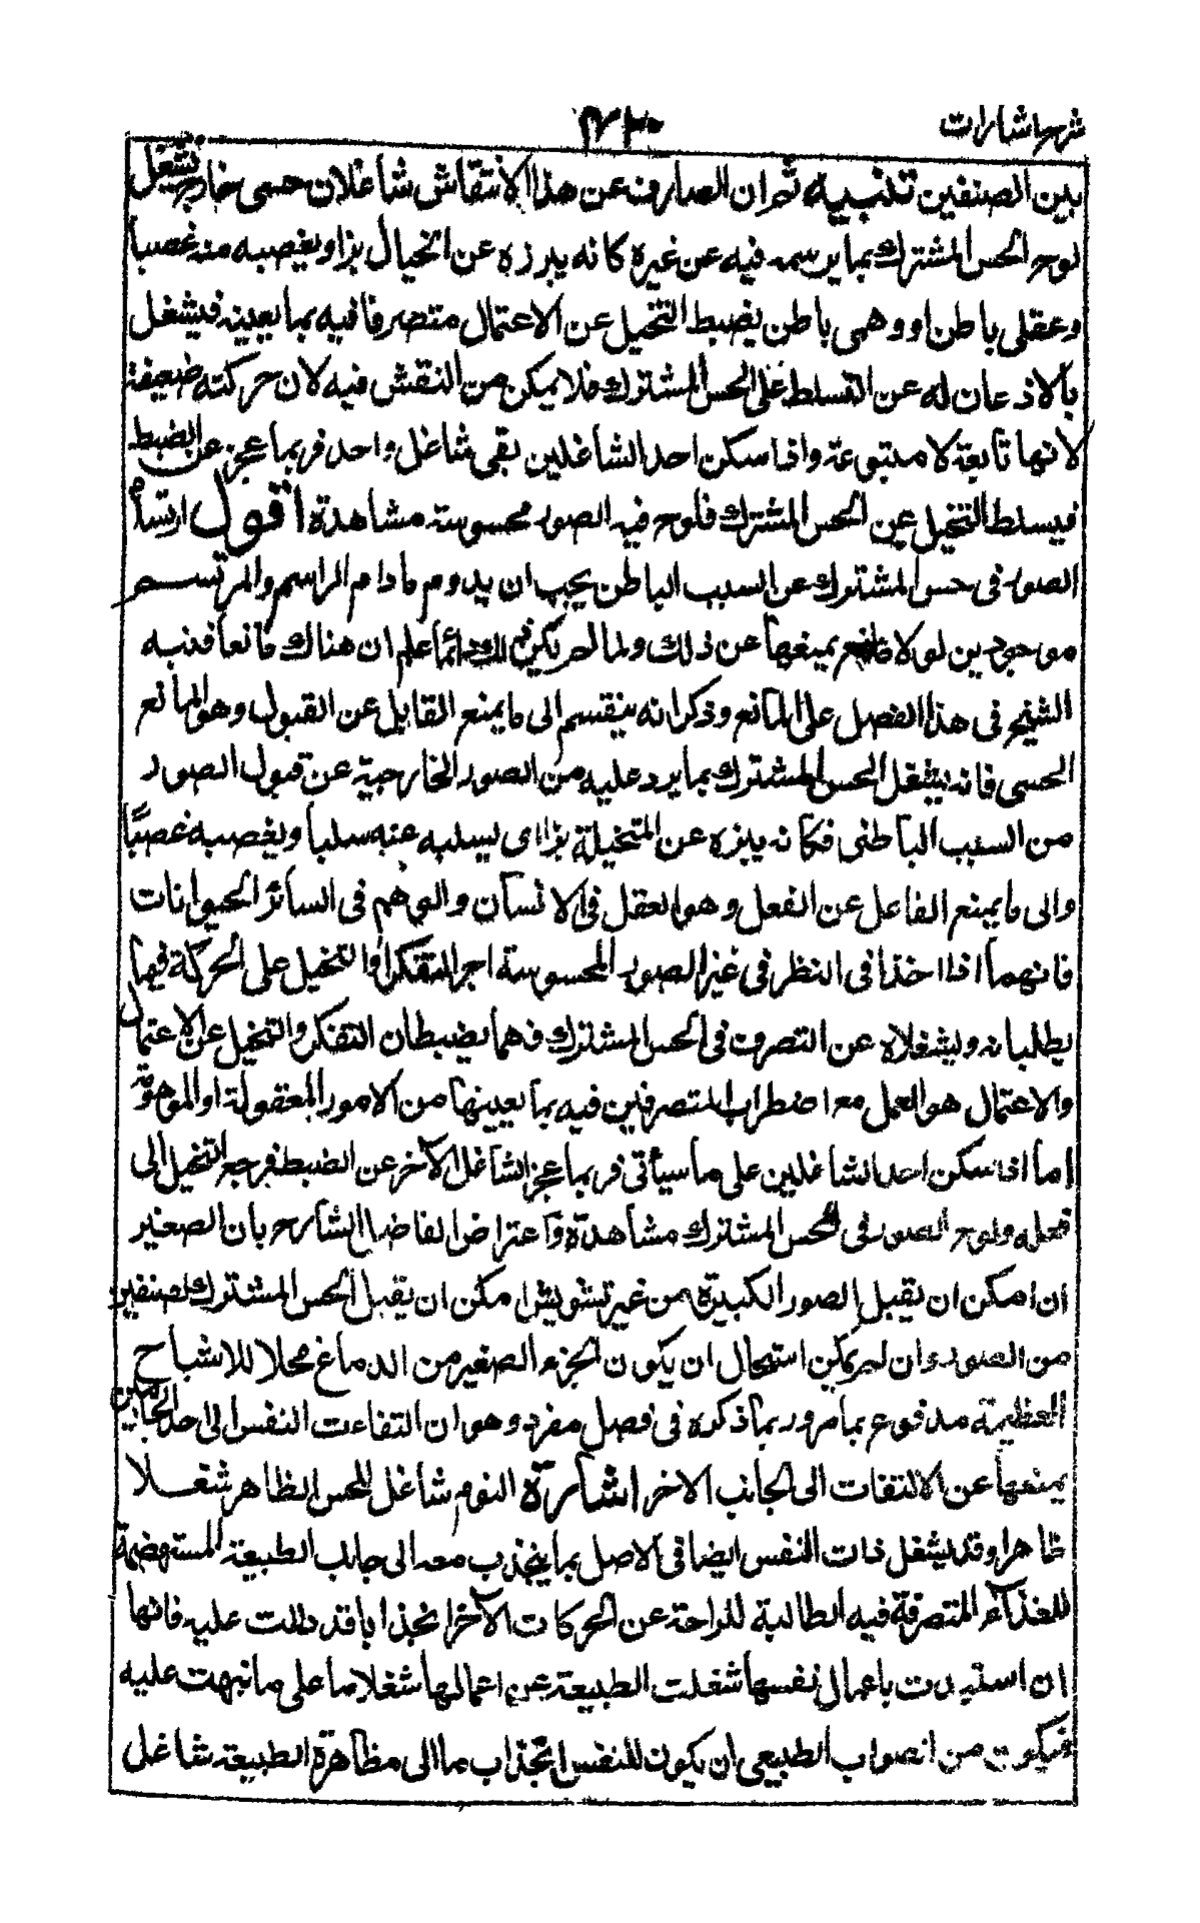 شرح اشارات
بين الصنفين تنبيه ثم ان الصارف عن هذا الانتقاش شاغلان حسى خارج يشغل
لوح الحس المشترك بما يرسمه فيه عن غيره كانه يبزه عن الخيال بزا ويغصبه منه غصبا
وعقلى باطن او وهمى باطن يضبط التخيل عن الاعتمال متصرفا فيه بما يعينه فيشغل
بالاذعان له عن التسلط على الحس المشترك فلا يمكن من النقش فيه لان حركته ضعيفة
لانها تابعة لا متبوعة واذا سكن احد الشاغلين بقى شاغل واحد فربما عجز عن الضبط
فيسلط التخيل عن الحس المشترك فلوح فيه الصور محسوسة مشاهدة اقول ارتسام
الصور فى حس المشترك عن السبب الباطن يجب ان يدوم ما دام الراسم والمرتسم
موجودين لولا مانع يمنعها عن ذلك ولما لم يكن دائما علم ان هناك مانعا فنبه
الشيخ فى هذا الفصل على المانع وذكر انه ينقسم الى ما يمنع القابل عن القبول وهو المانع
الحسى فانه يشغل الحس المشترك بما يرد عليه من الصور الخارجية عن قبول الصور
من السبب الباطنى فكانه يبزه عن المتخيلة بزا اى يسلبه عنه سلبا ويغصبه غصبًا
والى ما يمنع الفاعل عن الفعل وهو العقل فى الانسان والوهم فى السائر الحيوانات
فانهما اذا اخذا فى النظر فى غير الصور المحسوسة اجبرا التفكر او التخيل على الحركة فيما
يطلبانه ويشغلاه عن التصرف فى الحس المشترك فهما يضبطان التفكر والتخيل عن الاعتمال
والاعتمال هو العمل مع اضطراب المتصرفين فيه بما يعينها من الامور المعقولة او الموهومة
اما اذا سكن احد الشاغلين على ما سيأتى فربما عجز الشاغل الآخر عن الضبط فرجع التخيل الى
فعله ولوح الصور فى الحس المشترك مشاهدة واعتراض الفاضل الشارح بان الصغير
ان امكن ان يقبل الصور الكبيرة من غير تشويش امكن ان يقبل الحس المشترك لصنفين
من الصور وان لم يمكن استحال ان يكون الجزء الصغير من الدماغ محلا للاشباح
العظيمة مدفوع بما مر وربما ذكره فى فصل مفرد وهو ان التفاءت النفس الى احد الجانبين
يمنعها عن الالتفات الى الجانب الاخر اشارة النوم شاغل للحس الظاهر شغلا
ظاهرا وقد يشغل ذات النفس ايضا فى الاصل بما ينجذب معه الى جانب الطبيعة المستهضمة
للغذاء المتصرفة فيه الطالبة للراحة عن الحركات الآخر انجذابا قد دللت عليه فانها
ان استبدت باعمال نفسها شغلت الطبيعة عن اعمالها شغلا ما على ما نبهت عليه
فيكون من الصواب الطبيعى ان يكون للنفس انجذاب ما الى مظاهرة الطبيعة شاغل